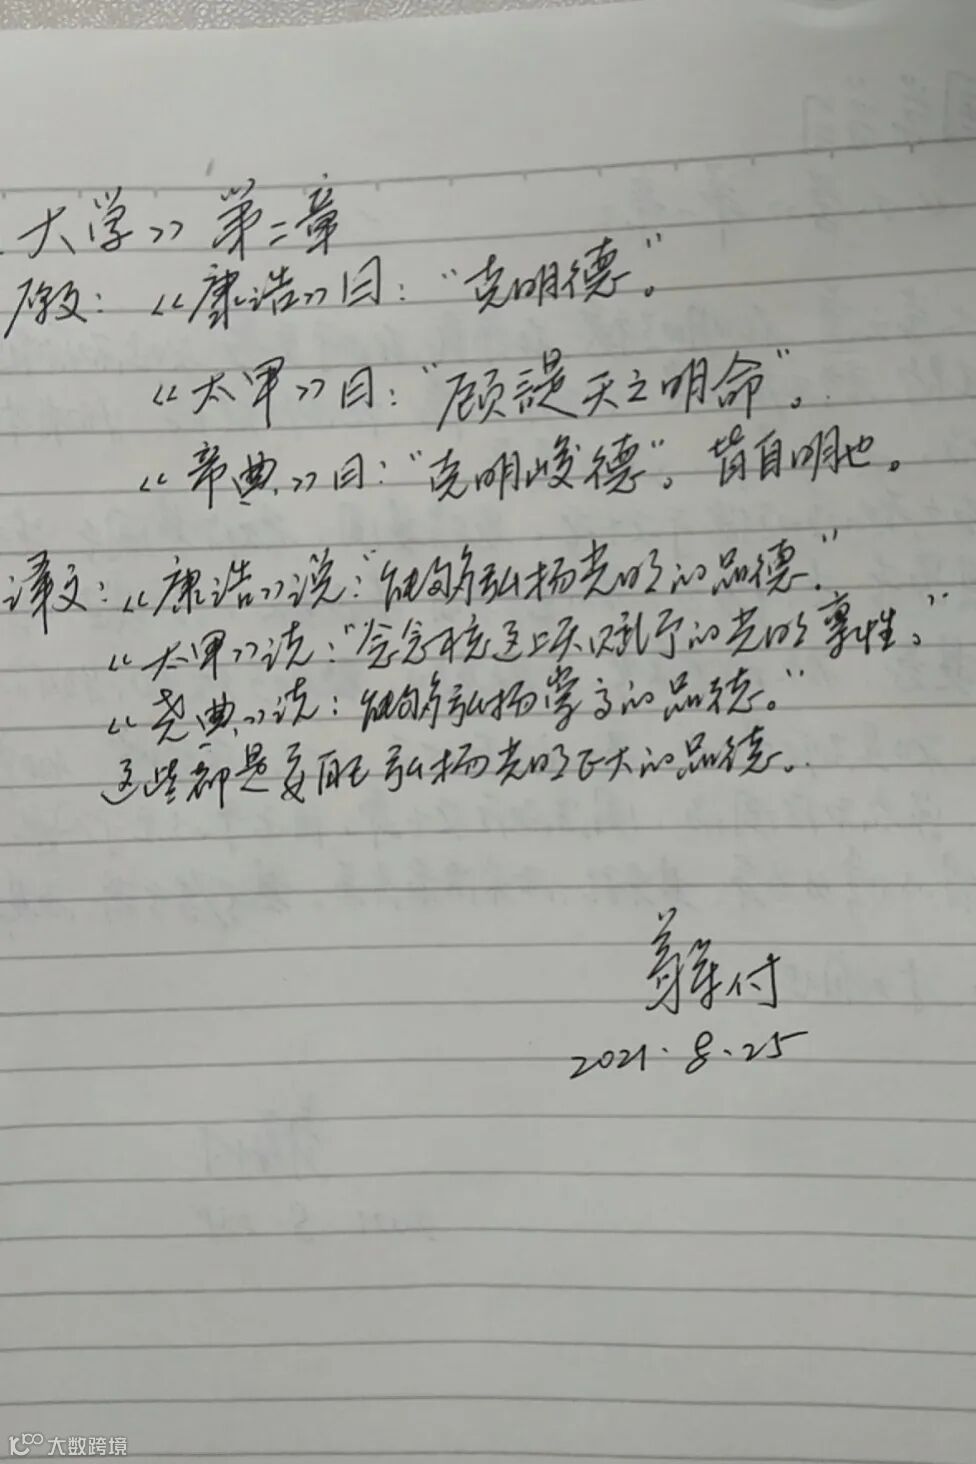 大学》第二章
原文：《康诰》曰：“克明德”。
《太甲》曰：“顾諟天之明命”。
《帝典》曰：“克明峻德”。皆自明也。
译文：《康浩》说：“能够弘扬光明的品德”.
《太甲》说：“念念不忘这上天赋予的光明禀性。”
《尧典》说：能够弘扬崇高的品德。”
这些都是要自己弘扬光明正大的品德。
付
2021.8.25
大数跨境